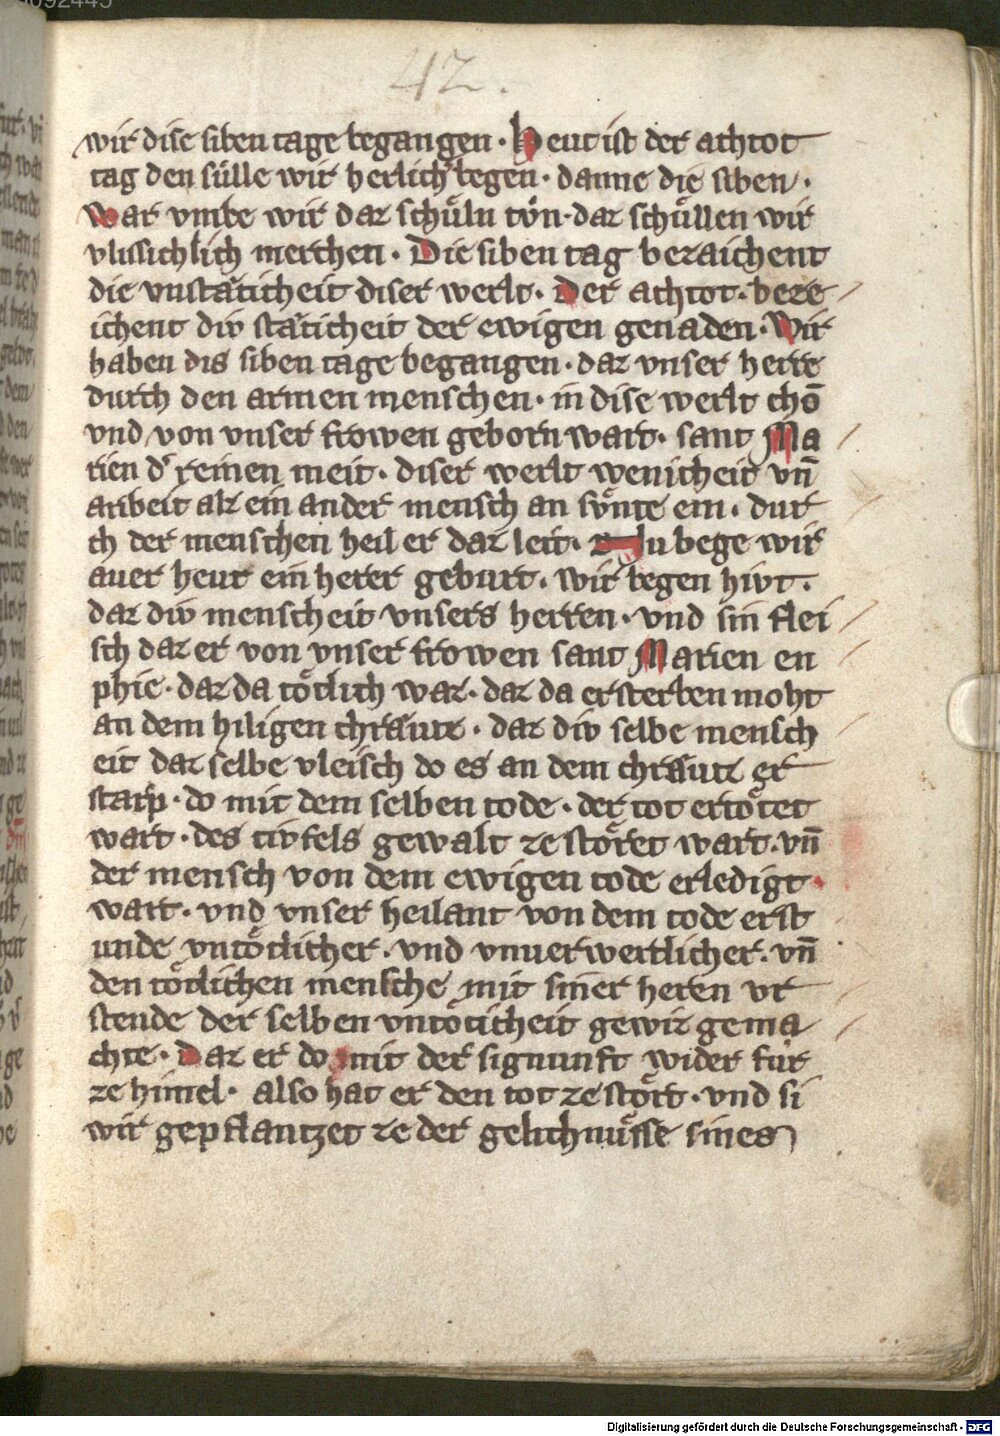 42.
wir dise siben tage begangen · Heut ist der achtot
tag den sülle wir herlich᷑ begen · danne die siben ·
War vmbe wir daz schůln tv̊n · daz schůllen wir
vlissichlich merchen · Die siben tag bezaichent
die vnstäticheit diser werlt · Der achtot · beze
ichent div stäticheit der ewigen genaden · Wir
haben dis siben tage begangen · daz vnser herre
durch den armen menschen · in dise werlt chō
vnd von vnser frowen geborn wart · sant Ma
rien d᷑ reinen meit · diser werlt wenicheit vn̄
aribeit alz ein ander mensch an sv̊nte ein · dur
ch der menschen heil er daz leit · Nu bege wir
auer heut ein herer geburt · wir begen hivt ·
daz div menscheit vnsers herren · vnd sin flei
sch daz er von vnser frowen sant Marien en
phie · daz da tötlich waz · daz da ersterben moht
an dem hiligen chräutz · daz div selbe mensch
eit daz selbe vleisch do es an dem chräutz er
starp · do mit dem selben tode · der tot ertötet
wart · des tivfels gewalt zestöret wart · vn̄
der mensch von dem ewigen tode erledigt
wart · vnd vnser heilant von dem tode erst
unde vntötlicher · vnd vnuerwertlicher · vn̄
den tötlichen mensche mit siner heren vr
stende der selben vntöticheit gewiz gema
chte · Daz er do mit der signunft wider fur
ze himel · also hat er den tot zestört · vnd si
wir gepflantzet ze der gelichnüsse sines
Digitalisierung gefördert durch die Deutsche Forschungsgemeinschaft - DFG